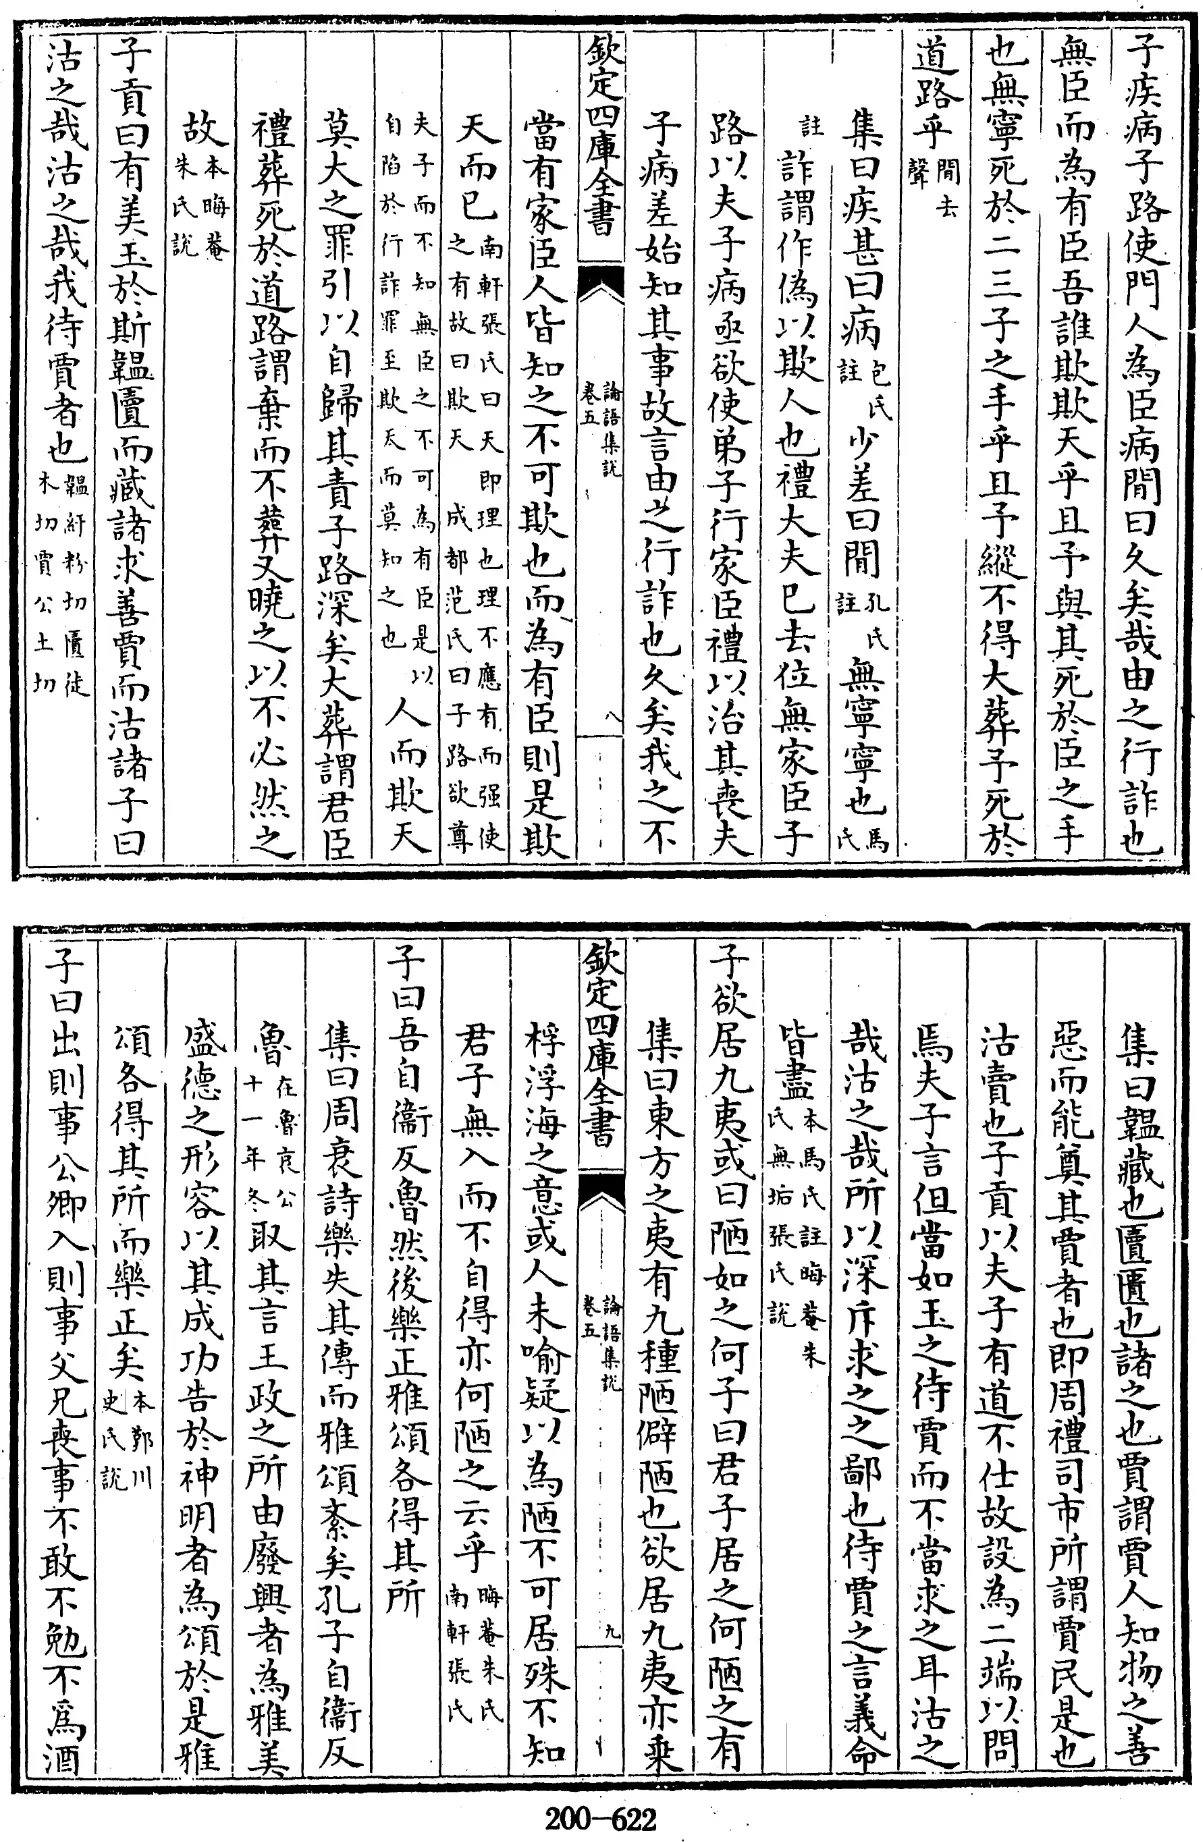 子疾病子路使門人為臣病閒曰久矣哉由之行詐也
無臣而為有臣吾誰欺欺天乎且予與其死於臣之手
也無寧死於二三子之手乎且予縱不得大葬予死於
道路乎閒去聲
集曰疾甚曰病包氏註少差曰閒孔氏註無寧寧也馬氏
註詐謂作偽以欺人也禮大夫已去位無家臣子
路以夫子病亟欲使弟子行家臣禮以治其喪夫
子病差始知其事故言由之行詐也久矣我之不
欽定四庫全書
論語集說
卷五
八
當有家臣人皆知之不可欺也而為有臣則是欺
天而已南軒張氏曰天即理也理不應有而强使之有故曰欺天 成都范氏曰子路欲尊
夫子而不知無臣之不可為有臣是以自陷於行詐罪至欺天而莫知之也人而欺天
莫大之罪引以自歸其責子路深矣大葬謂君臣
禮葬死於道路謂棄而不葬又曉之以不必然之
故本晦菴朱氏說
子貢曰有美玉於斯韞匵而藏諸求善賈而沽諸子曰
沽之哉沽之哉我待賈者也韞紆粉切匵徒木切賈公土切
集曰韞藏也匵匱也諸之也賈謂賈人知物之善
惡而能奠其賈者也即周禮司市所謂賈民是也
沽賣也子貢以夫子有道不仕故設為二端以問
焉夫子言但當如玉之待賈而不當求之耳沽之
哉沽之哉所以深斥求之之鄙也待賈之言義命
皆盡本馬氏註晦菴朱氏無垢張氏說
子欲居九夷或曰陋如之何子曰君子居之何陋之有
集曰東方之夷有九種陋僻陋也欲居九夷亦乘
欽定四庫全書
論語集說
卷五
九
桴浮海之意或人未喻疑以為陋不可居殊不知
君子無入而不自得亦何陋之云乎晦菴朱氏南軒張氏
子曰吾自衞反魯然後樂正雅頌各得其所
集曰周衰詩樂失其傳而雅頌紊矣孔子自衞反
魯在魯哀公十一年冬取其言王政之所由廢興者為雅美
盛德之形容以其成功告於神明者為頌於是雅
頌各得其所而樂正矣本鄞川史氏說
子曰出則事公卿入則事父兄喪事不敢不勉不爲酒
200-622